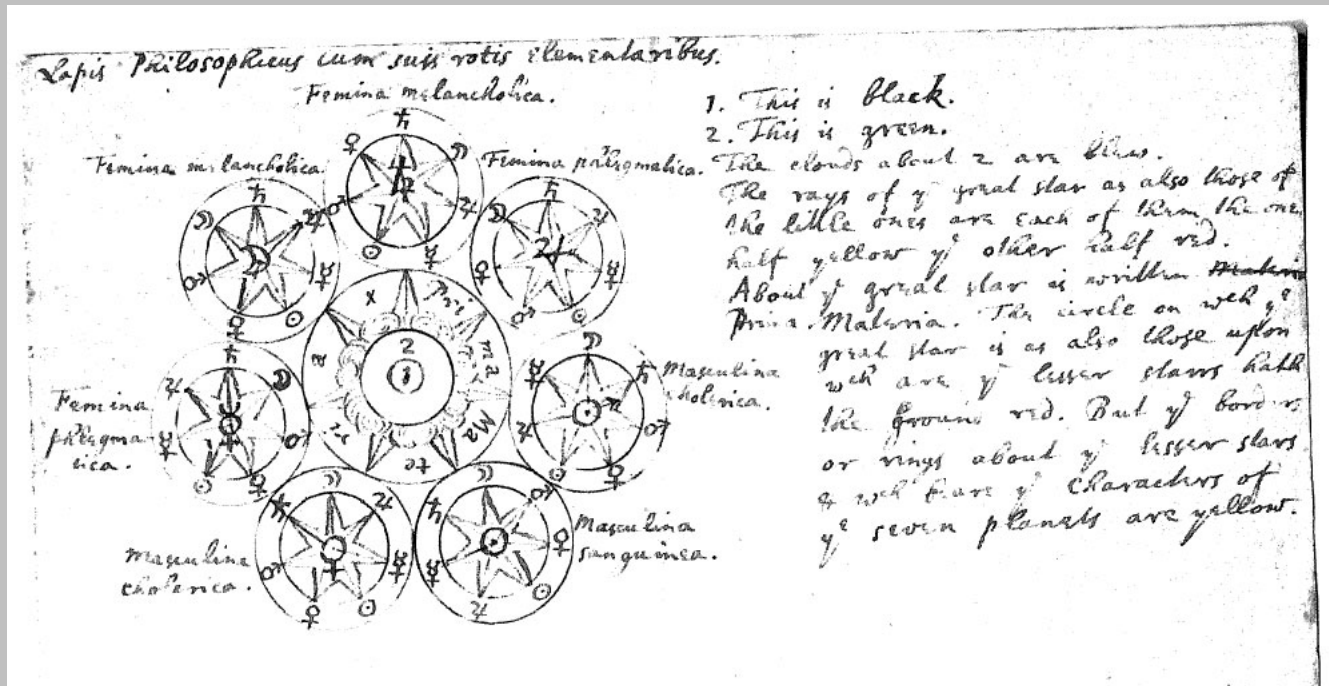 Lapis Philosophicus cum suis rotis elementaribus.
Femina melancholica.
Femina melancholica.
Femina phlegmatica.
Masculina
cholerica.
Masculina
sanguinea.
Masculina
cholerica.
Femina
phlegma-
tica.
♄ ☽ ♃ ☿ ☉ ♂ ♀
♄ ♃ ☿ ☉ ♀ ♂ ☽
♄ ♃ ☿ ♀
☽ ♄ ♂ ♀ ☉ ☿
☽ ♂ ♀ ☉ ♃ ☿ ♄
☽ ♃ ☿ ☉ ♀ ♂ ♄
♄ ☽ ♂ ♀ ☉ ☿ ♃
Pri ma Ma te ri a X
2
1
1. This is black.
2. This is green.
The clouds about 2 are blew.
The rays of yᵉ great star as also those of
the little ones are each of them the one
half yellow yᵉ other half red.
About yᵉ great star is written Materia
Prima Materia. The circle on wch yᵉ
great star is as also those upon
wch are yᵉ lesser starrs hath
the ground red. But yᵉ borders
or rings about yᵉ lesser stars
& wch beare yᵉ characters of
yᵉ seven planets are yellow.